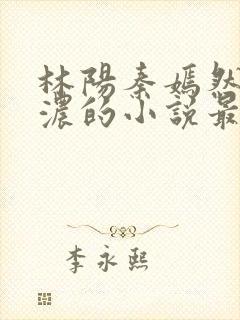 林陽秦嫣然
濃的小說最
李永熙